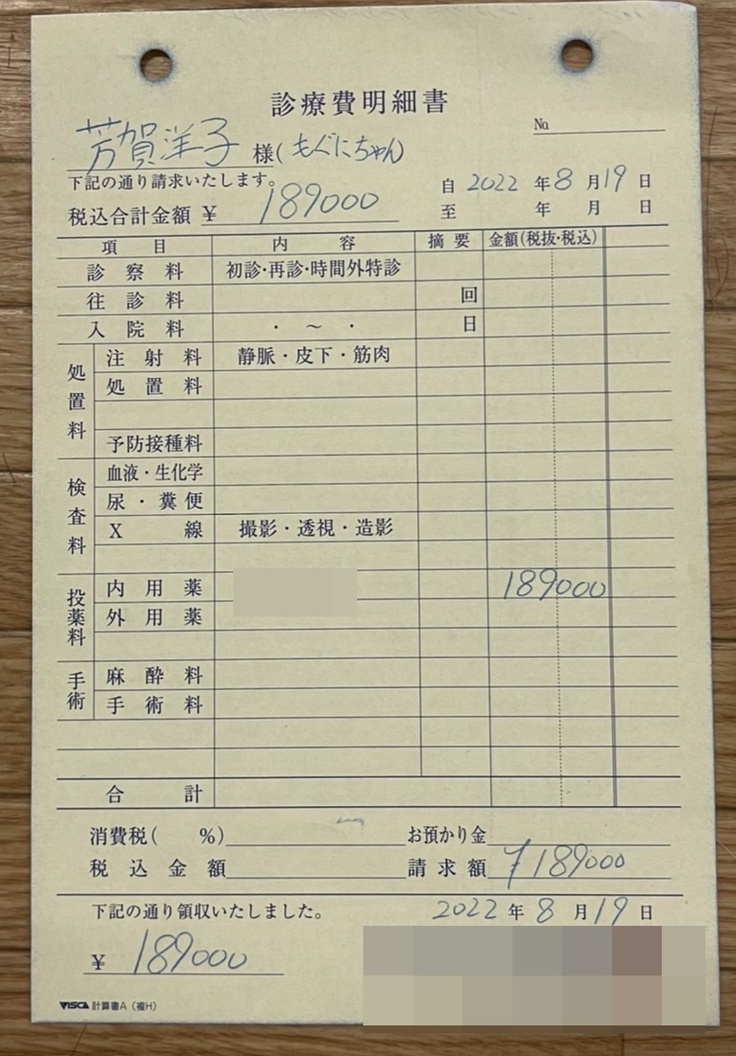 診療費明細書
No.
芳賀洋子 様(もぐにちゃん)
下記の通り請求いたします。
自 2022 年 8 月 19 日
税込合計金額 ¥ 189000
至 年 月 日
項目 内容 摘要 金額(税抜・税込)
診察料 初診・再診・時間外特診
往診料 回
入院料 ・ ～ ・ 日
処置料
注射料 静脈・皮下・筋肉
処置料
予防接種料
検査料
血液・生化学
尿・糞便
X線 撮影・透視・造影
投薬料
内用薬 189000
外用薬
手術
麻酔料
手術料
合計
消費税( %) お預かり金
税込金額 請求額 ¥189000
下記の通り領収いたしました。 2022 年 8 月 19 日
¥ 189000
VISCA 計算書A(複H)